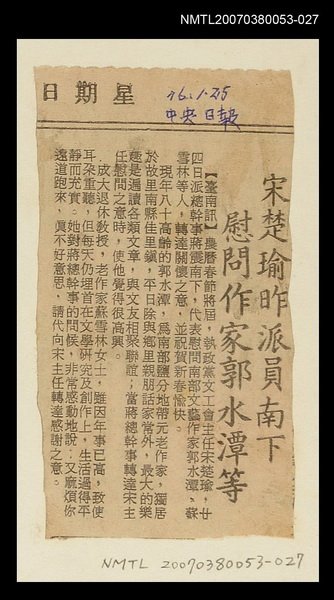 NMTL20070380053-027
日期星
76.1.25
中央日報
宋楚瑜昨派員南下
慰問作家郭水潭等
【臺南訊】農曆春節將屆,執政黨文工會主任宋楚瑜,廿
四日派總幹事蔣震南下,代表慰問南部文藝作家郭水潭、蘇
雪林等人,轉達關懷之意,並祝賀新春愉快。
現年八十高齡的郭水潭,爲南部鹽分地帶元老作家,獨居
於故里南縣佳里鎭,平日除與鄉里親朋話家常外,最大的樂
趣是遍讀各類文章,與文友相聚聯誼;當蔣總幹事轉達宋主
任慰問之意時,使他覺得很高興。
成大退休敎授,老作家蘇雪林女士,雖因年事已高,致使
耳朶重聽,但每天仍埋首在文學硏究及創作上,生活過得平
靜而充實。她對蔣總幹事的問候,非常感動地說:又麻煩你
遠道跑來,眞不好意思,請代向宋主任轉達感謝之意。
NMTL 20070380053-027